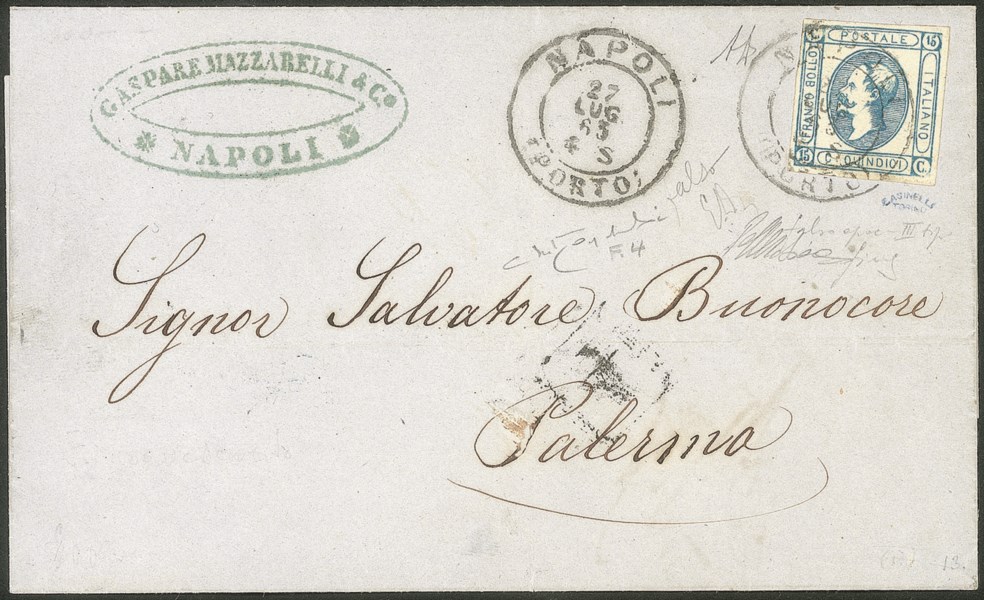 GASPARE MAZZARELLI & Cº
NAPOLI
NAPOLI
27
LUG
63
4 S
(PORTO)
FRANCO BOLLO
POSTALE
15
ITALIANO
15
C. QUINDICI
C.
(PORTO)
falso
F. 4
Signor Salvatore Buonocore
Palermo
13.